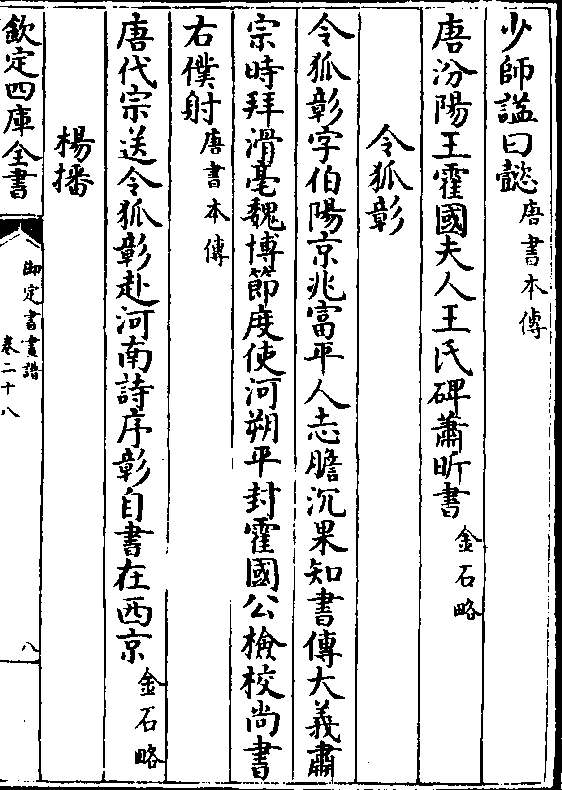 少師諡曰懿唐書本傳
唐汾陽王霍國夫人王氏碑蕭昕書金石略
令狐彰
令狐彰字伯陽京兆富平人志膽沉果知書傳大義肅
宗時拜滑亳魏博節度使河朔平封霍國公檢校尚書
右僕射唐書本傳
唐代宗送令狐彰赴河南詩序彰自書在西京金石略
楊播
欽定四庫全書
御定書畫譜
卷二十八
八